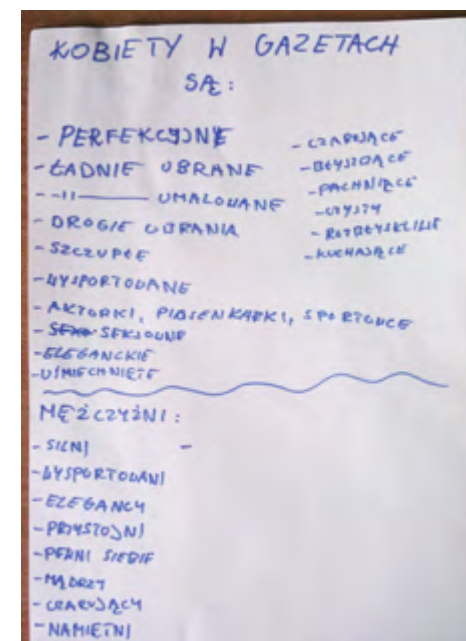 KOBIETY W GAZETACH
SĄ:
- PERFEKCYJNE
- ŁADNIE UBRANE
- -11- UMALOWANE
- DROGIE UBRANIA
- SZCZUPŁE
- WYSPORTOWANE
- AKTORKI, PIOSENKARKI, SPORTOWCE
- SEKSOWNE
- ELEGANCKIE
- UŚMIECHNIĘTE
- CZARUJĄCE
- BŁYSZCZĄCE
- PACHNIĄCE
- KOCHAJĄCE
MĘŻCZYŹNI:
- SILNI -
- WYSPORTOWANI
- ELEGANCY
- PRZYSTOJNI
- PEŁNI SIEBIE
- MĄDRZY
- CZARUJĄCY
- NAMIĘTNI